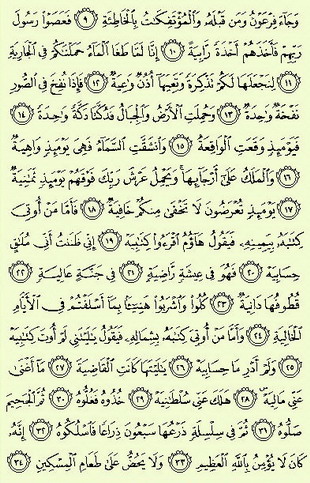 وَجَآءَ فِرْعَوْنُ وَمَن قَبْلَهُۥ وَٱلْمُؤْتَفِكَـٰتُ بِٱلْخَاطِئَةِ ٩ فَعَصَوْا۟ رَسُولَ
رَبِّهِمْ فَأَخَذَهُمْ أَخْذَةً رَّابِيَةً ١٠ إِنَّا لَمَّا طَغَا ٱلْمَآءُ حَمَلْنَـٰكُمْ فِى ٱلْجَارِيَةِ
١١ لِنَجْعَلَهَا لَكُمْ تَذْكِرَةً وَتَعِيَهَآ أُذُنٌ وَٰعِيَةٌ ١٢ فَإِذَا نُفِخَ فِى ٱلصُّورِ
نَفْخَةٌ وَٰحِدَةٌ ١٣ وَحُمِلَتِ ٱلْأَرْضُ وَٱلْجِبَالُ فَدُكَّتَا دَكَّةً وَٰحِدَةً ١٤
فَيَوْمَئِذٍ وَقَعَتِ ٱلْوَاقِعَةُ ١٥ وَٱنشَقَّتِ ٱلسَّمَآءُ فَهِىَ يَوْمَئِذٍ وَاهِيَةٌ
١٦ وَٱلْمَلَكُ عَلَىٰٓ أَرْجَآئِهَا وَيَحْمِلُ عَرْشَ رَبِّكَ فَوْقَهُمْ يَوْمَئِذٍ ثَمَـٰنِيَةٌ
١٧ يَوْمَئِذٍ تُعْرَضُونَ لَا تَخْفَىٰ مِنكُمْ خَافِيَةٌ ١٨ فَأَمَّا مَنْ أُوتِىَ
كِتَـٰبَهُۥ بِيَمِينِهِۦ فَيَقُولُ هَآؤُمُ ٱقْرَءُوا۟ كِتَـٰبِيَهْ ١٩ إِنِّى ظَنَنتُ أَنِّى مُلَـٰقٍ
حِسَابِيَهْ ٢٠ فَهُوَ فِى عِيشَةٍ رَّاضِيَةٍ ٢١ فِى جَنَّةٍ عَالِيَةٍ ٢٢
قُطُوفُهَا دَانِيَةٌ ٢٣ كُلُوا۟ وَٱشْرَبُوا۟ هَنِيٓـًٔۢا بِمَآ أَسْلَفْتُمْ فِى ٱلْأَيَّامِ
ٱلْخَالِيَةِ ٢٤ وَأَمَّا مَنْ أُوتِىَ كِتَـٰبَهُۥ بِشِمَالِهِۦ فَيَقُولُ يَـٰلَيْتَنِى لَمْ أُوتَ كِتَـٰبِيَهْ
٢٥ وَلَمْ أَدْرِ مَا حِسَابِيَهْ ٢٦ يَـٰلَيْتَهَا كَانَتِ ٱلْقَاضِيَةَ ٢٧ مَآ أَغْنَىٰ
عَنِّى مَالِيَهْ ٢٨ هَلَكَ عَنِّى سُلْطَـٰنِيَهْ ٢٩ خُذُوهُ فَغُلُّوهُ ٣٠ ثُمَّ ٱلْجَحِيمَ
صَلُّوهُ ٣١ ثُمَّ فِى سِلْسِلَةٍ ذَرْعُهَا سَبْعُونَ ذِرَاعًا فَٱسْلُكُوهُ ٣٢ إِنَّهُۥ
كَانَ لَا يُؤْمِنُ بِٱللَّهِ ٱلْعَظِيمِ ٣٣ وَلَا يَحُضُّ عَلَىٰ طَعَامِ ٱلْمِسْكِينِ ٣٤